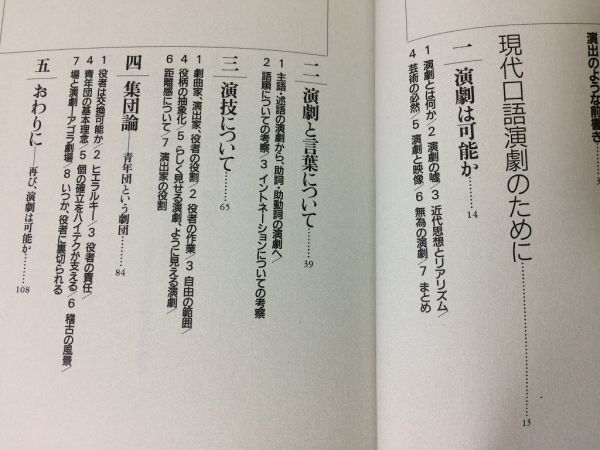 演出のような前書き
現代口語演劇のために……13
一 演劇は可能か……14
1 演劇とは何か/2 演劇の嘘/3 近代思想とリアリズム/
4 芸術の必然/5 演劇と映像/6 無為の演劇/7 まとめ
二 演劇と言葉について……39
1 主語・述語の演劇から、助詞・助動詞の演劇へ/
2 語順についての考察/3 イントネーションについての考察
三 演技について……65
1 劇曲家、演出家、役者の役割/2 役者の作業/3 自由の範囲/
4 役柄の抽象化/5 らしく見せる演劇、ように見える演劇/
6 距離感について/7 演出家の役割
四 集団論——青年団という劇団……84
1 役者は交換可能か/2 ヒエラルキー/3 役者の責任/
4 青年団の基本理念/5 個の確立をハイテクが支える/6 稽古の風景/
7 場と演劇—アゴラ劇場/8 いつか、役者に裏切られる
五 おわりに——再び、演劇は可能か……108